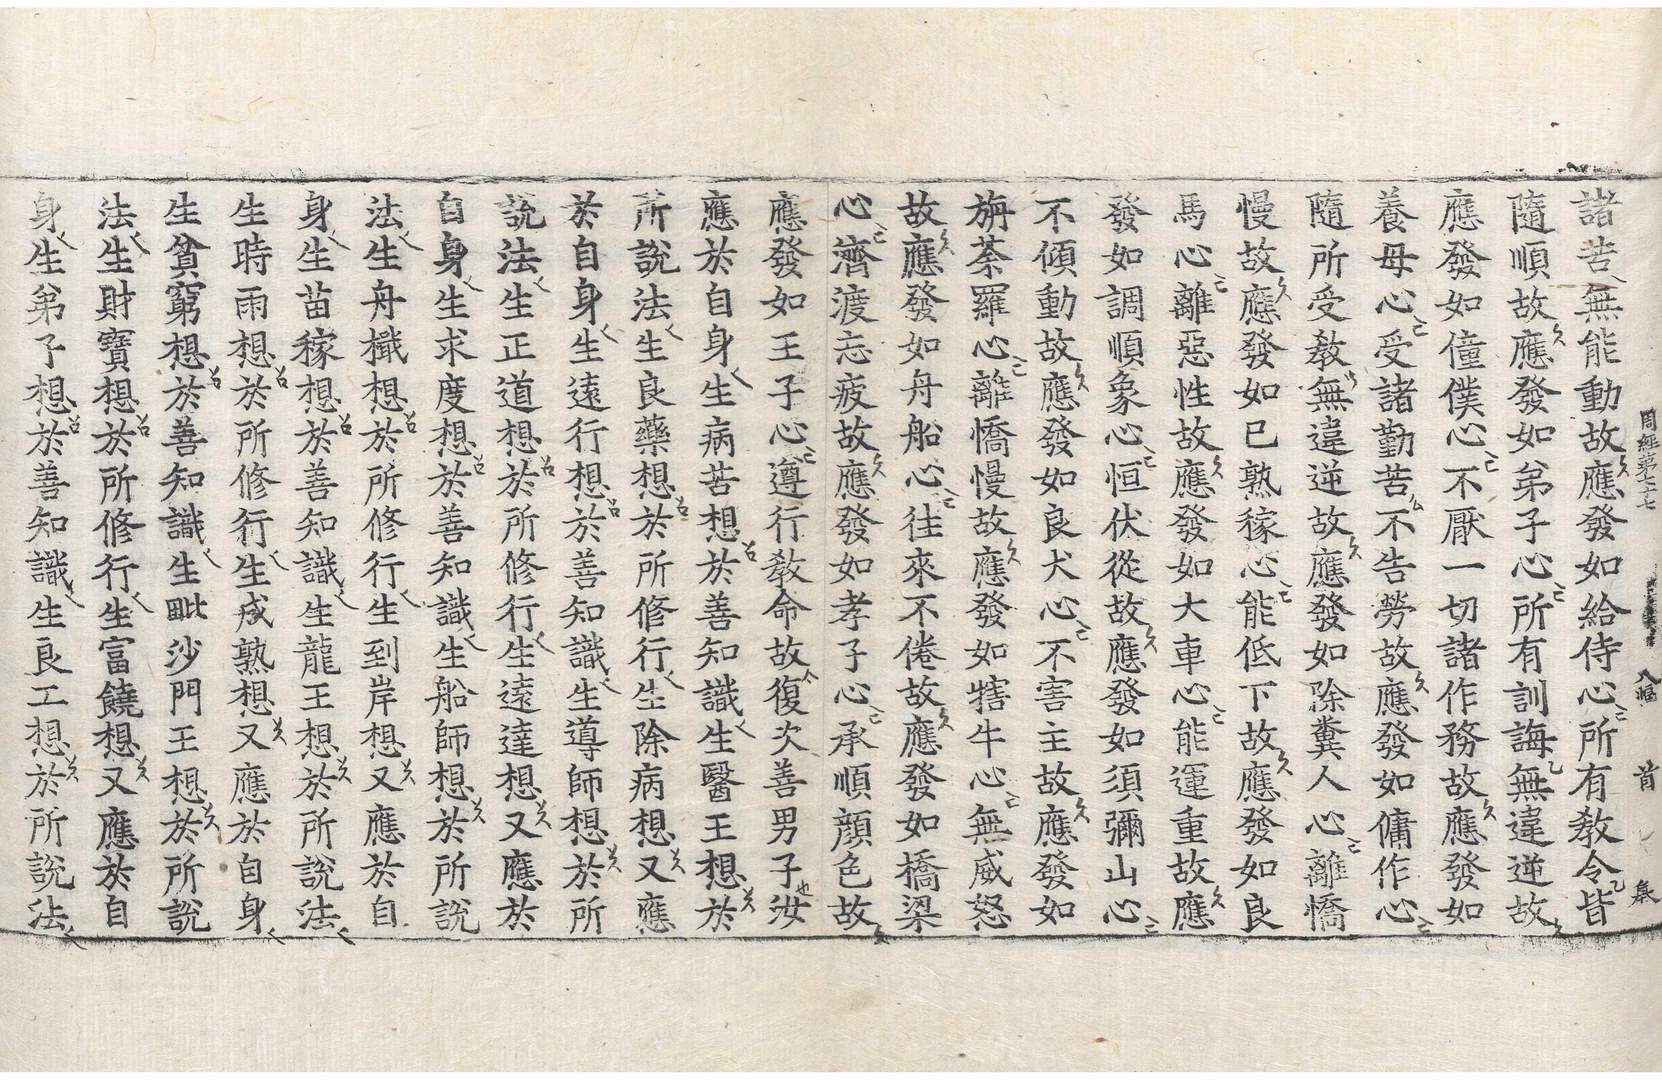 周經第七十七 八幅 首
諸苦無能動故應發如給侍心所有教令皆
隨順故應發如弟子心所有訓誨無違逆故
應發如僮僕心不厭一切諸作務故應發如
養母心受諸勤苦不告勞故應發如傭作心
隨所受教無違逆故應發如除糞人心離憍
慢故應發如已熟稼心能低下故應發如良
馬心離惡性故應發如大車心能運重故應
發如調順象心恒伏從故應發如須彌山心
不傾動故應發如良犬心不害主故應發如
旃荼羅心離憍慢故應發如犗牛心無威怒
故應發如舟船心往來不倦故應發如橋梁
心濟渡忘疲故應發如孝子心承順顏色故
應發如王子心遵行教命故復次善男子汝
應於自身生病苦想於善知識生醫王想於
所說法生良藥想於所修行生除病想又應
於自身生遠行想於善知識生導師想於所
說法生正道想於所修行生遠達想又應於
自身生求度想於善知識生船師想於所說
法生舟檝想於所修行生到岸想又應於自
身生苗稼想於善知識生龍王想於所說法
生時雨想於所修行生成熟想又應於自身
生貧窮想於善知識生毗沙門王想於所說
法生財寶想於所修行生富饒想又應於自
身生弟子想於善知識生良工想於所說法